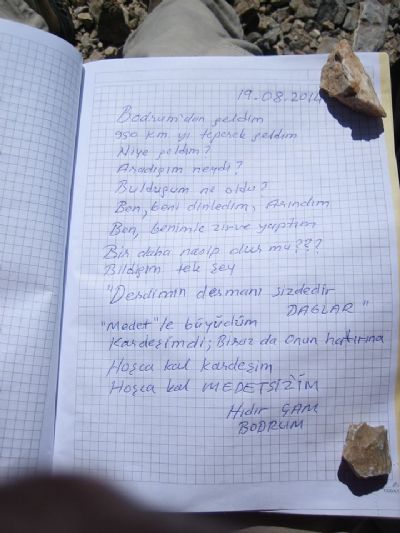 19-08-2014
Bodrum'dan geldim
950 km. yi teperek geldim
Niye geldim?
Aradığım neydi?
Bulduğum ne oldu?
Ben, beni dinledim, Arındım
Ben, benimle zirve yaptım
Bir daha nasip olur mu???
Bildiğim tek şey
"Derdimin dermanı sizdedir
DAĞLAR"
"Medet"le büyüdüm
Kardeşimdi; Biraz da onun hatırına
Hoşça kal kardeşim
Hoşça kal MEDETSİZ'İM
Hıdır ÇAM
BODRUM